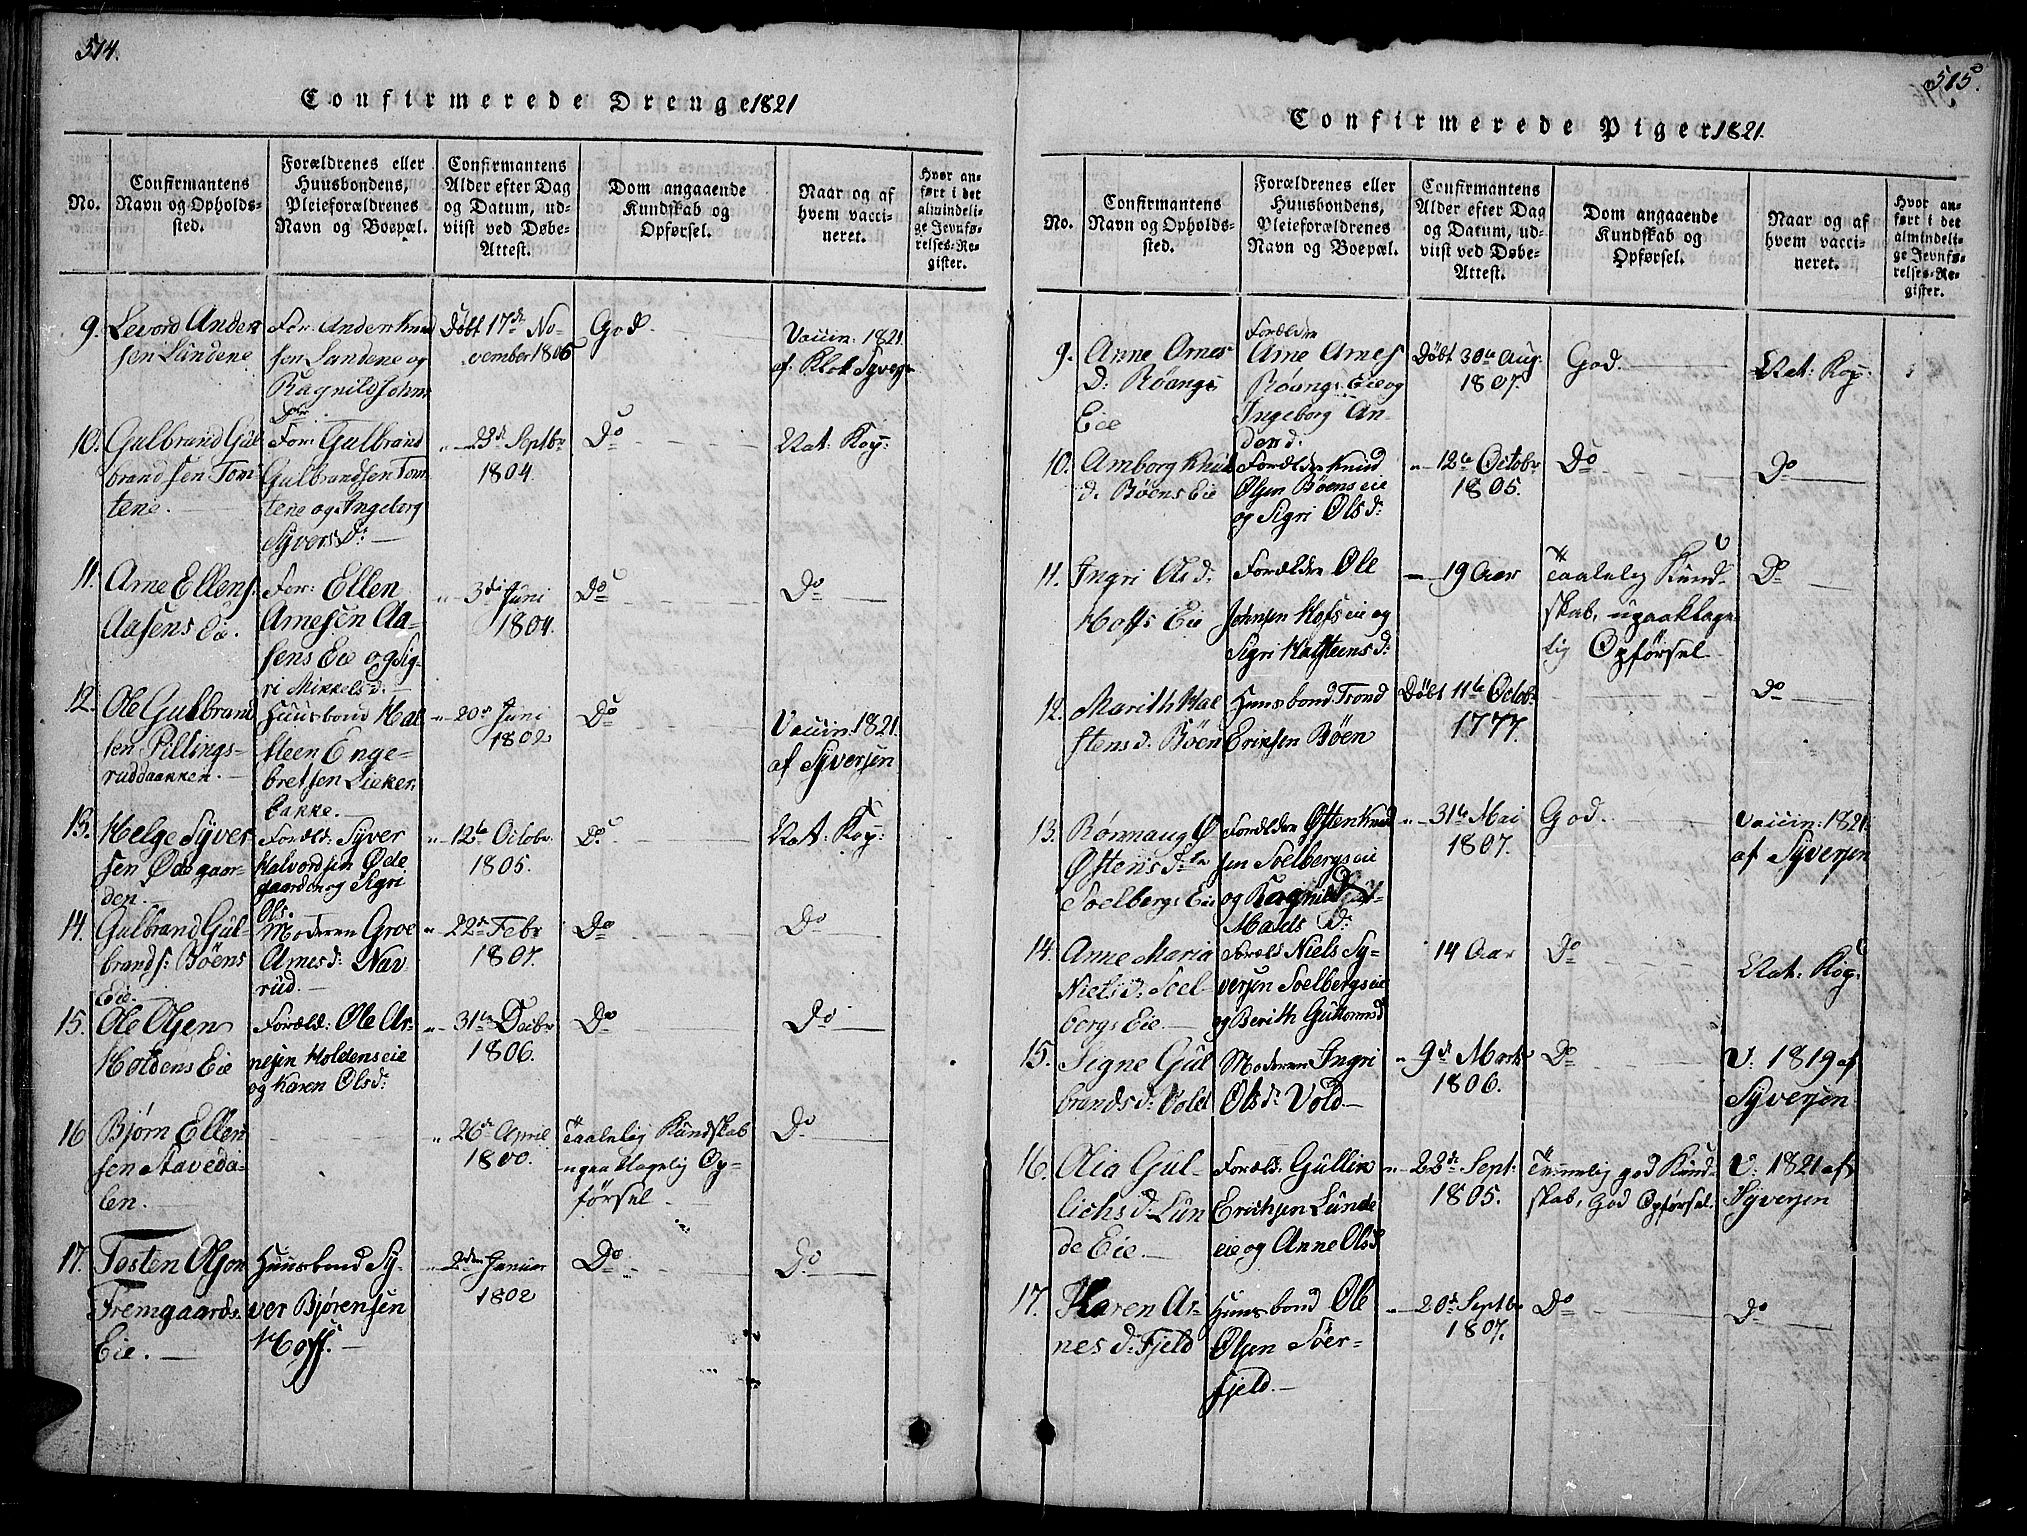 514.
Confirmerede Drenge 1821
No.
Confirmantens
Navn og Opholds-
sted.
Forældrenes eller
Huusbondens,
Pleieforældrenes
Navn og Boepæl.
Confirmantens
Alder efter Dag
og Datum, ud-
viist ved Døbe-
Attest.
Dom angaaende
Kundskab og
Opførsel.
Naar og af
hvem vacci-
neret.
Hvor an-
ført i det
almindeli-
ge Jevnfø-
relses-Re-
gister.
9.
Levord Ander
sen Lundene
For: Anden Knud
sen Lundene og
Ragnild Johns
Dr.
Døbt 17de No-
vember 1806
God.
Vaccin: 1821
af Klok Syvers
10.
Gulbrand Gul
brandsen Tom-
tene.
For: Gulbrand
Gulbrandsen Tom
tene og Ingeborg
Syvers D:
" 23d Septbr
1804.
Do
Nat: Kop:
11.
Arne Ellens.
Aasens Eie.
For: Ellen
Arnesen Aa-
sens Eie og Sig-
ri Mikkels d.
" 3de Juni
1804.
Do
Do
12.
Ole Gulbrand
sen Pillings-
rudbakken.
Huusbond Hal
steen Enge-
bretsen Lieker
bakke.
" 20d Juni
1802
Do
Vaccin: 1821.
af Syversen
13.
Helge Syver
sen Ødegaar-
den.
Foræld: Syver
Halvordsen Øde
gaarden og Sigri
Ols.
" 12te Octobr
1805.
Do
Nat: Kop:
14.
Gulbrand Gul-
brands: Böens
Eie.
Moderen Groe
Arnes d: Nav
rud.
" 22d Febr
1807.
Do
Do
15.
Ole Olsen
Holdens Eie
Foræld: Ole Ar-
nesen Holdens eie
og Karen Ols d:
" 31te Decbr
1806.
Do
Do
16
Bjørn Ellen
sen Staveda-
len.
" 26d April
1800.
Taalelig Kundskab
upaaklagelig Op-
førsel
Do
17.
Tosten Olsen
Fremgaards.
Eie.
Huusbond Sy-
ver Bjørensen
Hoff.
" 2den Januar
1802
Do
Do
515.
Confirmerede Piger 1821.
No.
Confirmantens
Navn og Opholds-
sted.
Forældrenes eller
Huusbondens,
Pleieforældrenes
Navn og Boepæl.
Confirmantens
Alder efter Dag
og Datum, ud-
viist ved Døbe-
Attest.
Dom angaaende
Kundskab og
Opførsel.
Naar og af
hvem vacci-
neret.
Hvor an-
ført i det
almindeli-
ge Jevnfø-
relses-Re-
gister.
9.
Anne Arnes
d: Røangs
Eie
Forældre
Arne Arnes
Røangs Eie og
Ingeborg An-
ders d.
Døbt 30te Aug:
1807.
God.
Nat: Kop:
10.
Amborg Knud
d. Böens Eie
Forældre Knud
Olsen Böens eie
og Sigri Ols d:
" 12te Octobr
1805.
Do
Do
11.
Ingri Ols d:
Hoffs Eie
Forældre Ole
Johnsen Hofs eie og
Sigri Halsteens d:
19 Aar
Taalelig Kund-
skab, upaaklage
lig Opførsel
Do
12.
Marith Hal
stens d: Böen
Huusbond Trond
Eriksen Böen
Døbt 11te Octobr
1777.
Do
13.
Rönnaug Ø
Østens d.
Soelbergs Eie
Forældre Østen Knud
sen Soelbergs eie
og Ragnild
Mads D:
" 31te Mai
1807.
God.
Vaccin: 1821.
af Syversen
14.
Anne Maria
Niels d: Soel-
bergs Eie.
Foræld Niels Sy-
versen Soelbergs eie
og Berith Guttorms d
14 Aar
Do
Nat: Kop:
15.
Signe Gul
brands d: Vold
Moderen Ingri
Ols d: Vold
" 9d Marts
1806.
Do
V: 1819 af
Syversen
16.
Olia Gul-
lichs d: Lun
de Eie.
Foræld: Gullin
Erichsen Lunde
eie og Anne Ols d
" 22de Sept:
1805.
Temmelig god Kund-
skab, God Opførsel.
V: 1821 af
Syversen
17.
Karen Ar-
nes d: Fjeld
Huusbond Ole
Olsen Söer-
fjeld.
" 20de Septbr
1807.
Do
Do